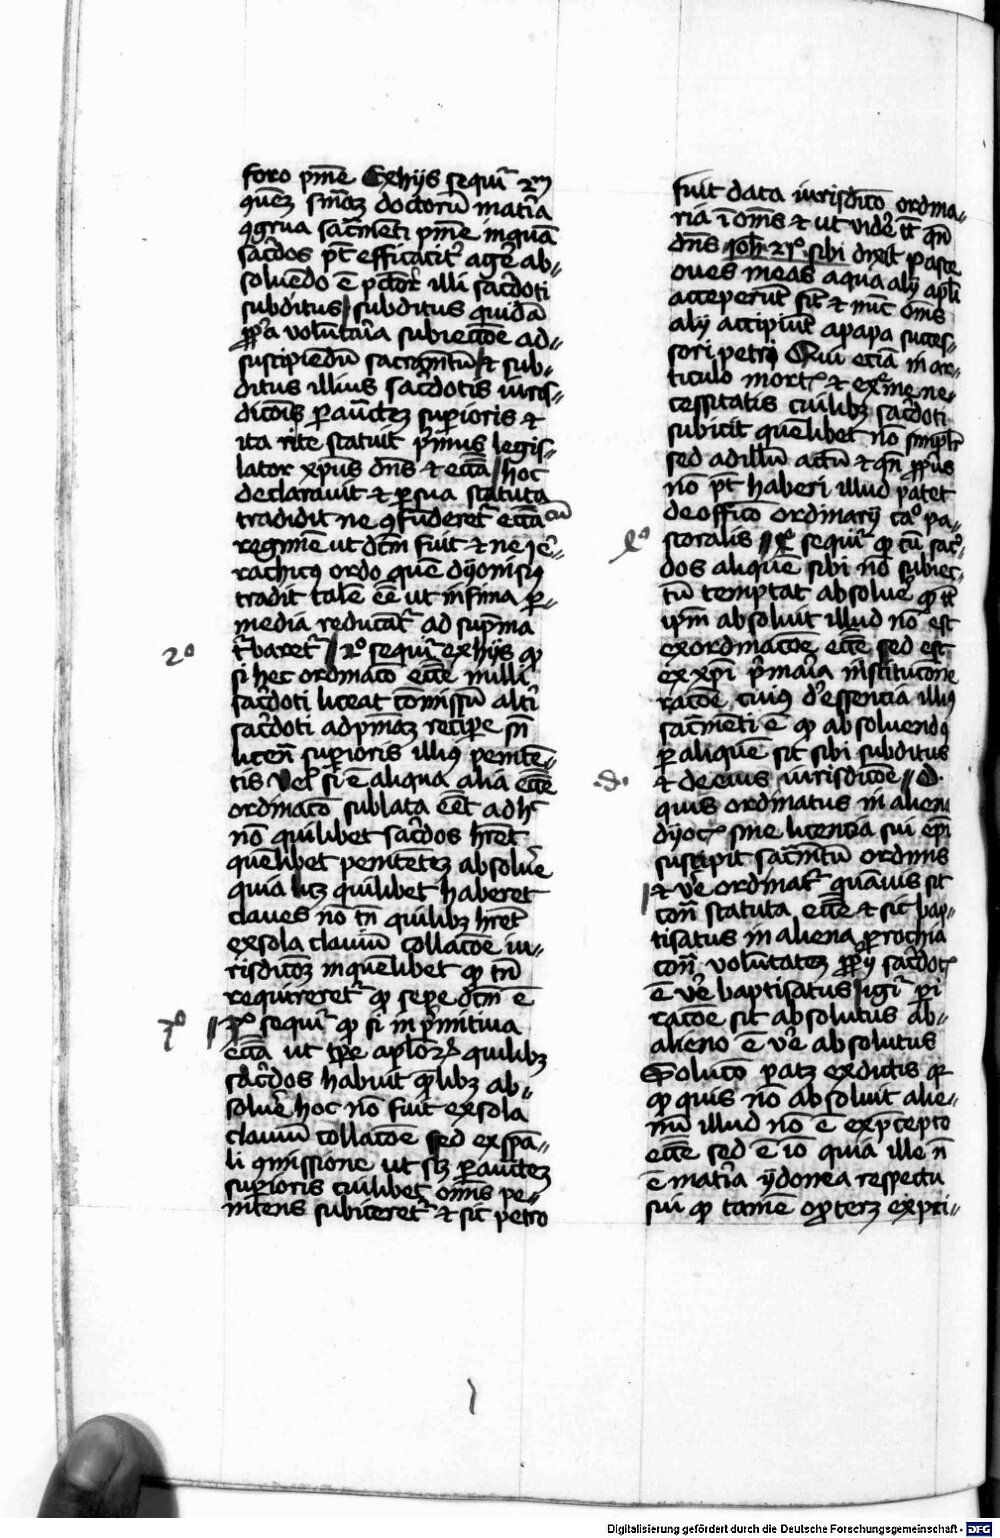 foro pnīe Ex hijs sequiť 2m
quēz snīaz doctorū mat̄ia
ꝯgrua sac̄meti pnīe inquā
sac̄dos pt̄ efficacit̄ age᷒ ab=
soluēdo ē pctōr illi sac̄doti
subditus / subditus quidā
ꝓpa volūtaīa subiecc̄oe ad=
suscipiēdū sacramntū / et sub=
ditus illius sac̄dotis iuris=
dicc̄ois ꝑ auctez suꝑioris et
ita rite statuit p̄mus legis=
lator xp̄us dn̄s et ecc̄a / hoc
declarauit et ꝑ sua statuta
tradidit ne ꝯfūderet᷒ ecc̄a cū
regimē ut dc̄m fuit et ne ie᷒=
rachicꝯ ordo quē dyonisiꝯ
tradit talē eē ut infima ꝑ=
media reducat᷒ ad sup̄ma
t᷒baret᷒ / 2o sequiť ex hijs ꝙ
si hec ordinac̄o ecc̄e nulli
sac̄doti liceat cōmissū alt̄i
sac̄doti ad pnīaz reciꝑe sn̄
licen̄ suꝑioris illiꝯ penitē=
tis Vel si ē aliqua alia ecc̄e
ordinac̄o sublata eēt ad hc
nō quilibet sac̄dos hret
quēlibet penitētez absolue᷒
quia licz quilibet haberet
claues nō tn̄ quilibz hret
ex sola clauiū collac̄oe iu=
risdicc̄oz in quēlibet ꝙ tn̄
requireret᷒ ꝙ sepe dc̄m ē
// 3o sequiť ꝙ si in p̄mitiua
ecc̄a ut tp̄e apl̄oꝝ quilibz
sac̄dos habuit q̄libz ab=
solue᷒ hoc nō fuit ex sola
clauiū collac̄oe sed ex spā=
li ꝯmissione ut sc̄z ꝑ auctez
suꝑioris cuilibet om̄is pe=
nitens subiceret᷒ et sic petro
2o
3o
fuit data iurisdicc̄o ordina=
ria ī om̄s et ut vide᷒ tt̄ qn̄
dn̄s Joh. 21o. sibi dixit Pasce
oues meas a qua alij apl̄i
acceperūt sic̄ et nūc om̄s
alij accipiūt a papa succes=
sori petri Qui eciā in ar=
ticulo mort᷒ et ext᷒me ne=
cessitatis cuilibz sac̄doti
subicit quēlibet nō simplr̄
sed ad illū actū et qn̄ ꝓpriꝯ
nō pt̄ haberi illud patet
de officio ordinarij cao pa=
storalis // 4o sequiť ꝙ cū sac̄=
dos aliquē sibi nō subiec=
tū temptat absolue᷒ ꝙ tt̄
ip̄m absoluit illud nō est
ex ordinac̄oe ecc̄e sed est
ex xp̄i p̄maria institucione
rac̄oe cuiꝯ d᷒ essencia illiꝯ
sac̄meti ē ꝙ absoluendꝯ
ꝑ aliquē sit sibi subditus
et de eius iurisdicc̄oe // d.
quis ordinatus in aliena
dyoc᷒ sine licencia sui ep̄i
suscipit sac̄mtū ordinis
et ve᷒ ordinat᷒ quāuis sit
cont̄ statuta ecc̄e et sic bap=
tisatus in aliena ꝑrochia
cont̄ volūtatez ꝓpij sac̄dot᷒
ē ve᷒ baptisatus / igit᷒ pi
rac̄oe sit absolutus ab=
alieno ē ve᷒ absolutus
Soluc̄o patz ex dictis qꝛ
ꝙ quis nō absoluit alie=
nū illud nō ē ex p̄cepto
ecc̄e sed ē io quia ille n̄
ē mat̄ia ydonea respectu
sui ꝙ tamē oꝓterz ex pti=
4o
.d.